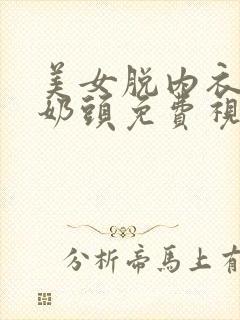 美女脱内衣
奶頭免費視
分析帝馬上有